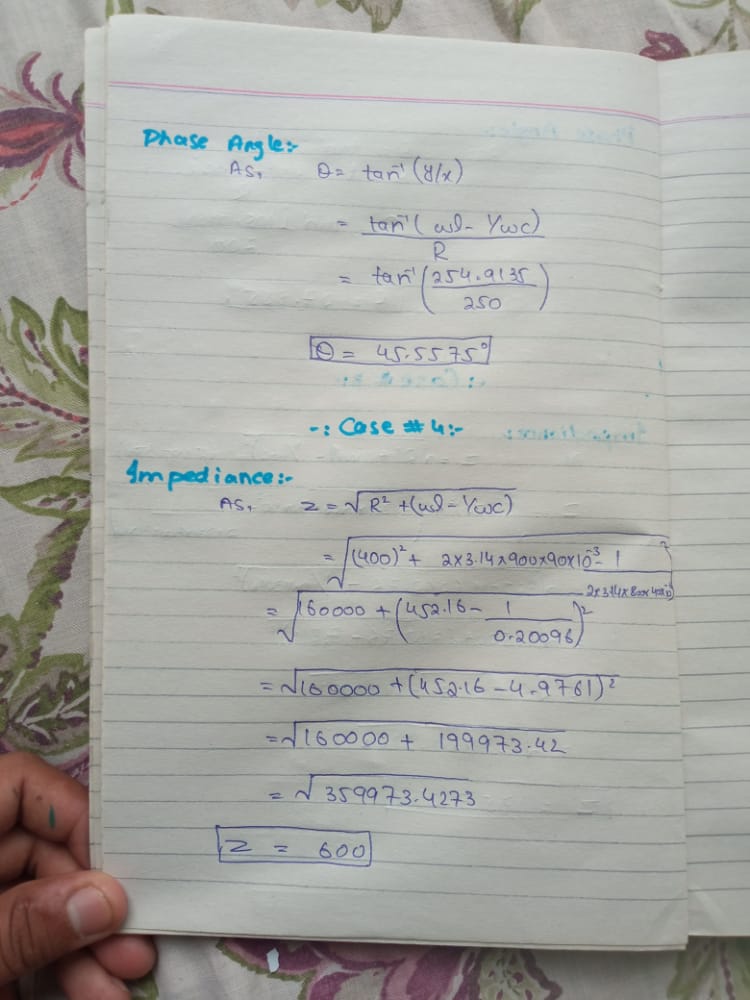 Phase Angle:-
As, θ = tan⁻¹(y/x)
= tan⁻¹(ωl - 1/ωc)
R
= tan⁻¹(254.9135
250)
θ = 45.5575°
-: Case #4:-
Impediance:-
As, Z = √R² + (ωl - 1/ωc)
= √(400)² + 2x3.14x900x90x10⁻³ - 1 ²
2x3.14x800x40x10
= √160000 + (452.16 - 1
0.20096)²
= √160000 + (452.16 - 4.9761)²
= √160000 + 199973.42
= √359973.4273
Z = 600